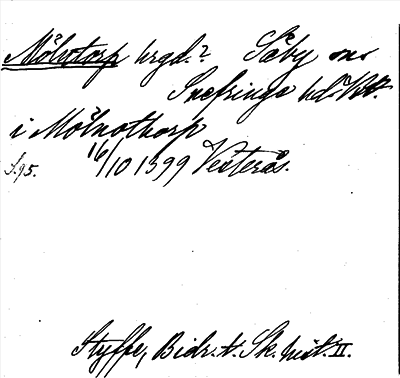 Mölntorp hrgd.? Säby sns
Snefringe hd. Vstm.
i Mölnothorp
S. 95. 16/10 1399 Vesterås.
Styffe, Bidr. t. Sk. hist. II.